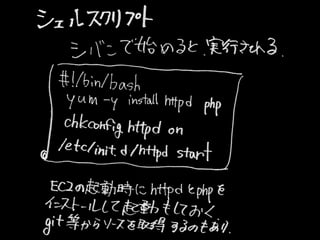 シェルスクリプト
シバンで始めると、実行される.
#!/bin/bash
yum -y install httpd php
chkconfig httpd on
/etc/init.d/httpd start
EC2の起動時にhttpdとphpを
インストールして起動もしておく
git等からソースを取得するのもあり.